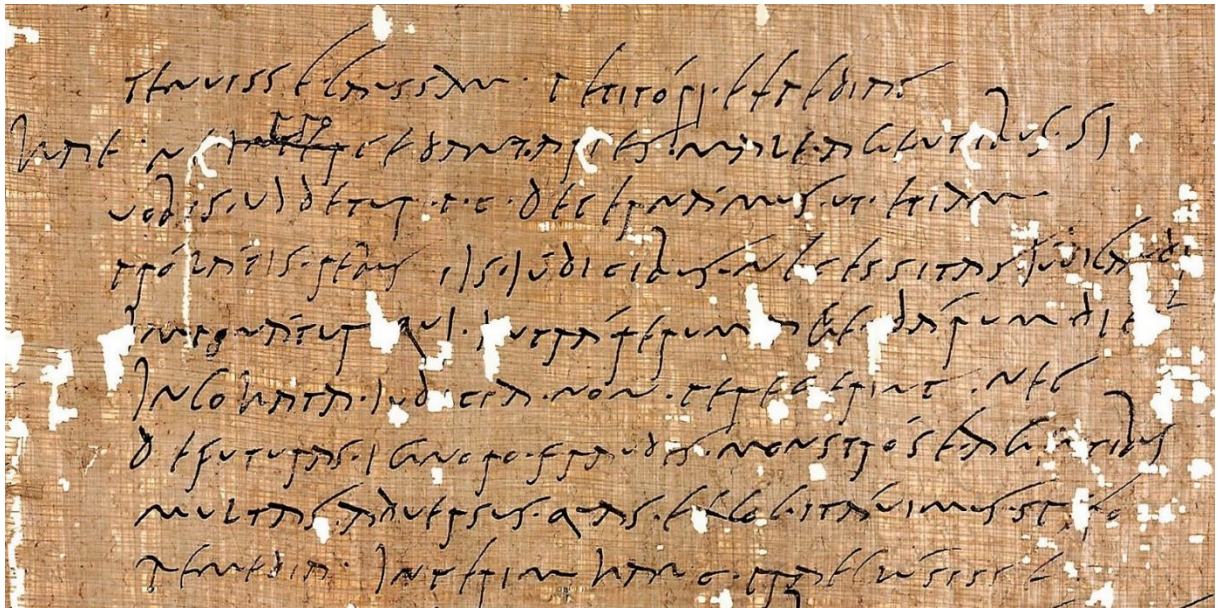 tenuisse caussam petitóri expediat
hae ne procedant artes male agentibus si
vobis videtur p c decernamus ut etiam
prólátis rebus iis iúdicibus necessitas iúdicandi
impónátur qui intrá rerum agendárum dies
incohata iudicia non peregerint nec
defuturas ignoro fraudes monstróse agentibus
multas adversus quas excogitávimus spero
remedia interim hanc praeclúsisse